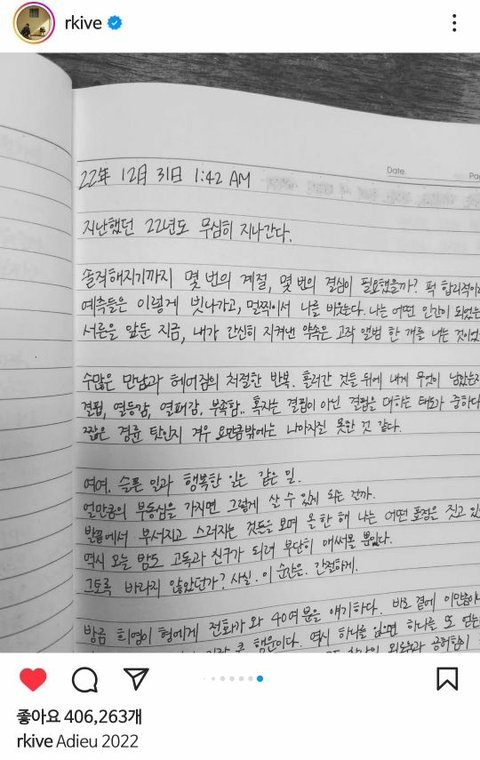 rkive
Date.
Pag
22年 12月 31日 1:42 AM
지난했던 22년도 무심히 지나간다.
솔직해지기까지 몇 번의 계절, 몇 번의 결심이 필요했을까? 퍽 합리적이
예측들은 이렇게 빗나가고, 멀찍이서 나를 비웃는다. 나는 어떤 인간이 되었는
서른을 앞둔 지금, 내가 간신히 지켜낸 약속은 고작 앨범 한 개를 내는 것이었
수많은 만남과 헤어짐의 처절한 반복. 흘러간 것들 뒤에 내게 무엇이 남았는지
결핍, 열등감, 열패감, 부족함.. 혹자는 결핍이 아닌 결핍을 대하는 태도가 중하다
짧은 경륜 탓인지 겨우 요만큼밖에는 나아지질 못한 것 같다.
여여. 슬픈 일과 행복한 일은 같은 일.
얼만큼의 부동심을 가지면 그렇게 살 수 있게 되는 건가.
발밑에서 부서지고 스러지는 것들을 보며 올 한 해 나는 어떤 표정을 짓고 있
역시 오늘 밤도 고독과 친구가 되려 부단히 애써볼 뿐이다.
그토록 바라지 않았던가? 사실. 이 순간을. 간절하게.
방금 희영이 형에게 전화가 와 40여분을 얘기하다. 바로 곁에 이만큼이나
큰 행운이다. 역시 하나를 잃으면 하나를 또 얻는
외로움과 공허함이
좋아요 406,263개
rkive Adieu 2022